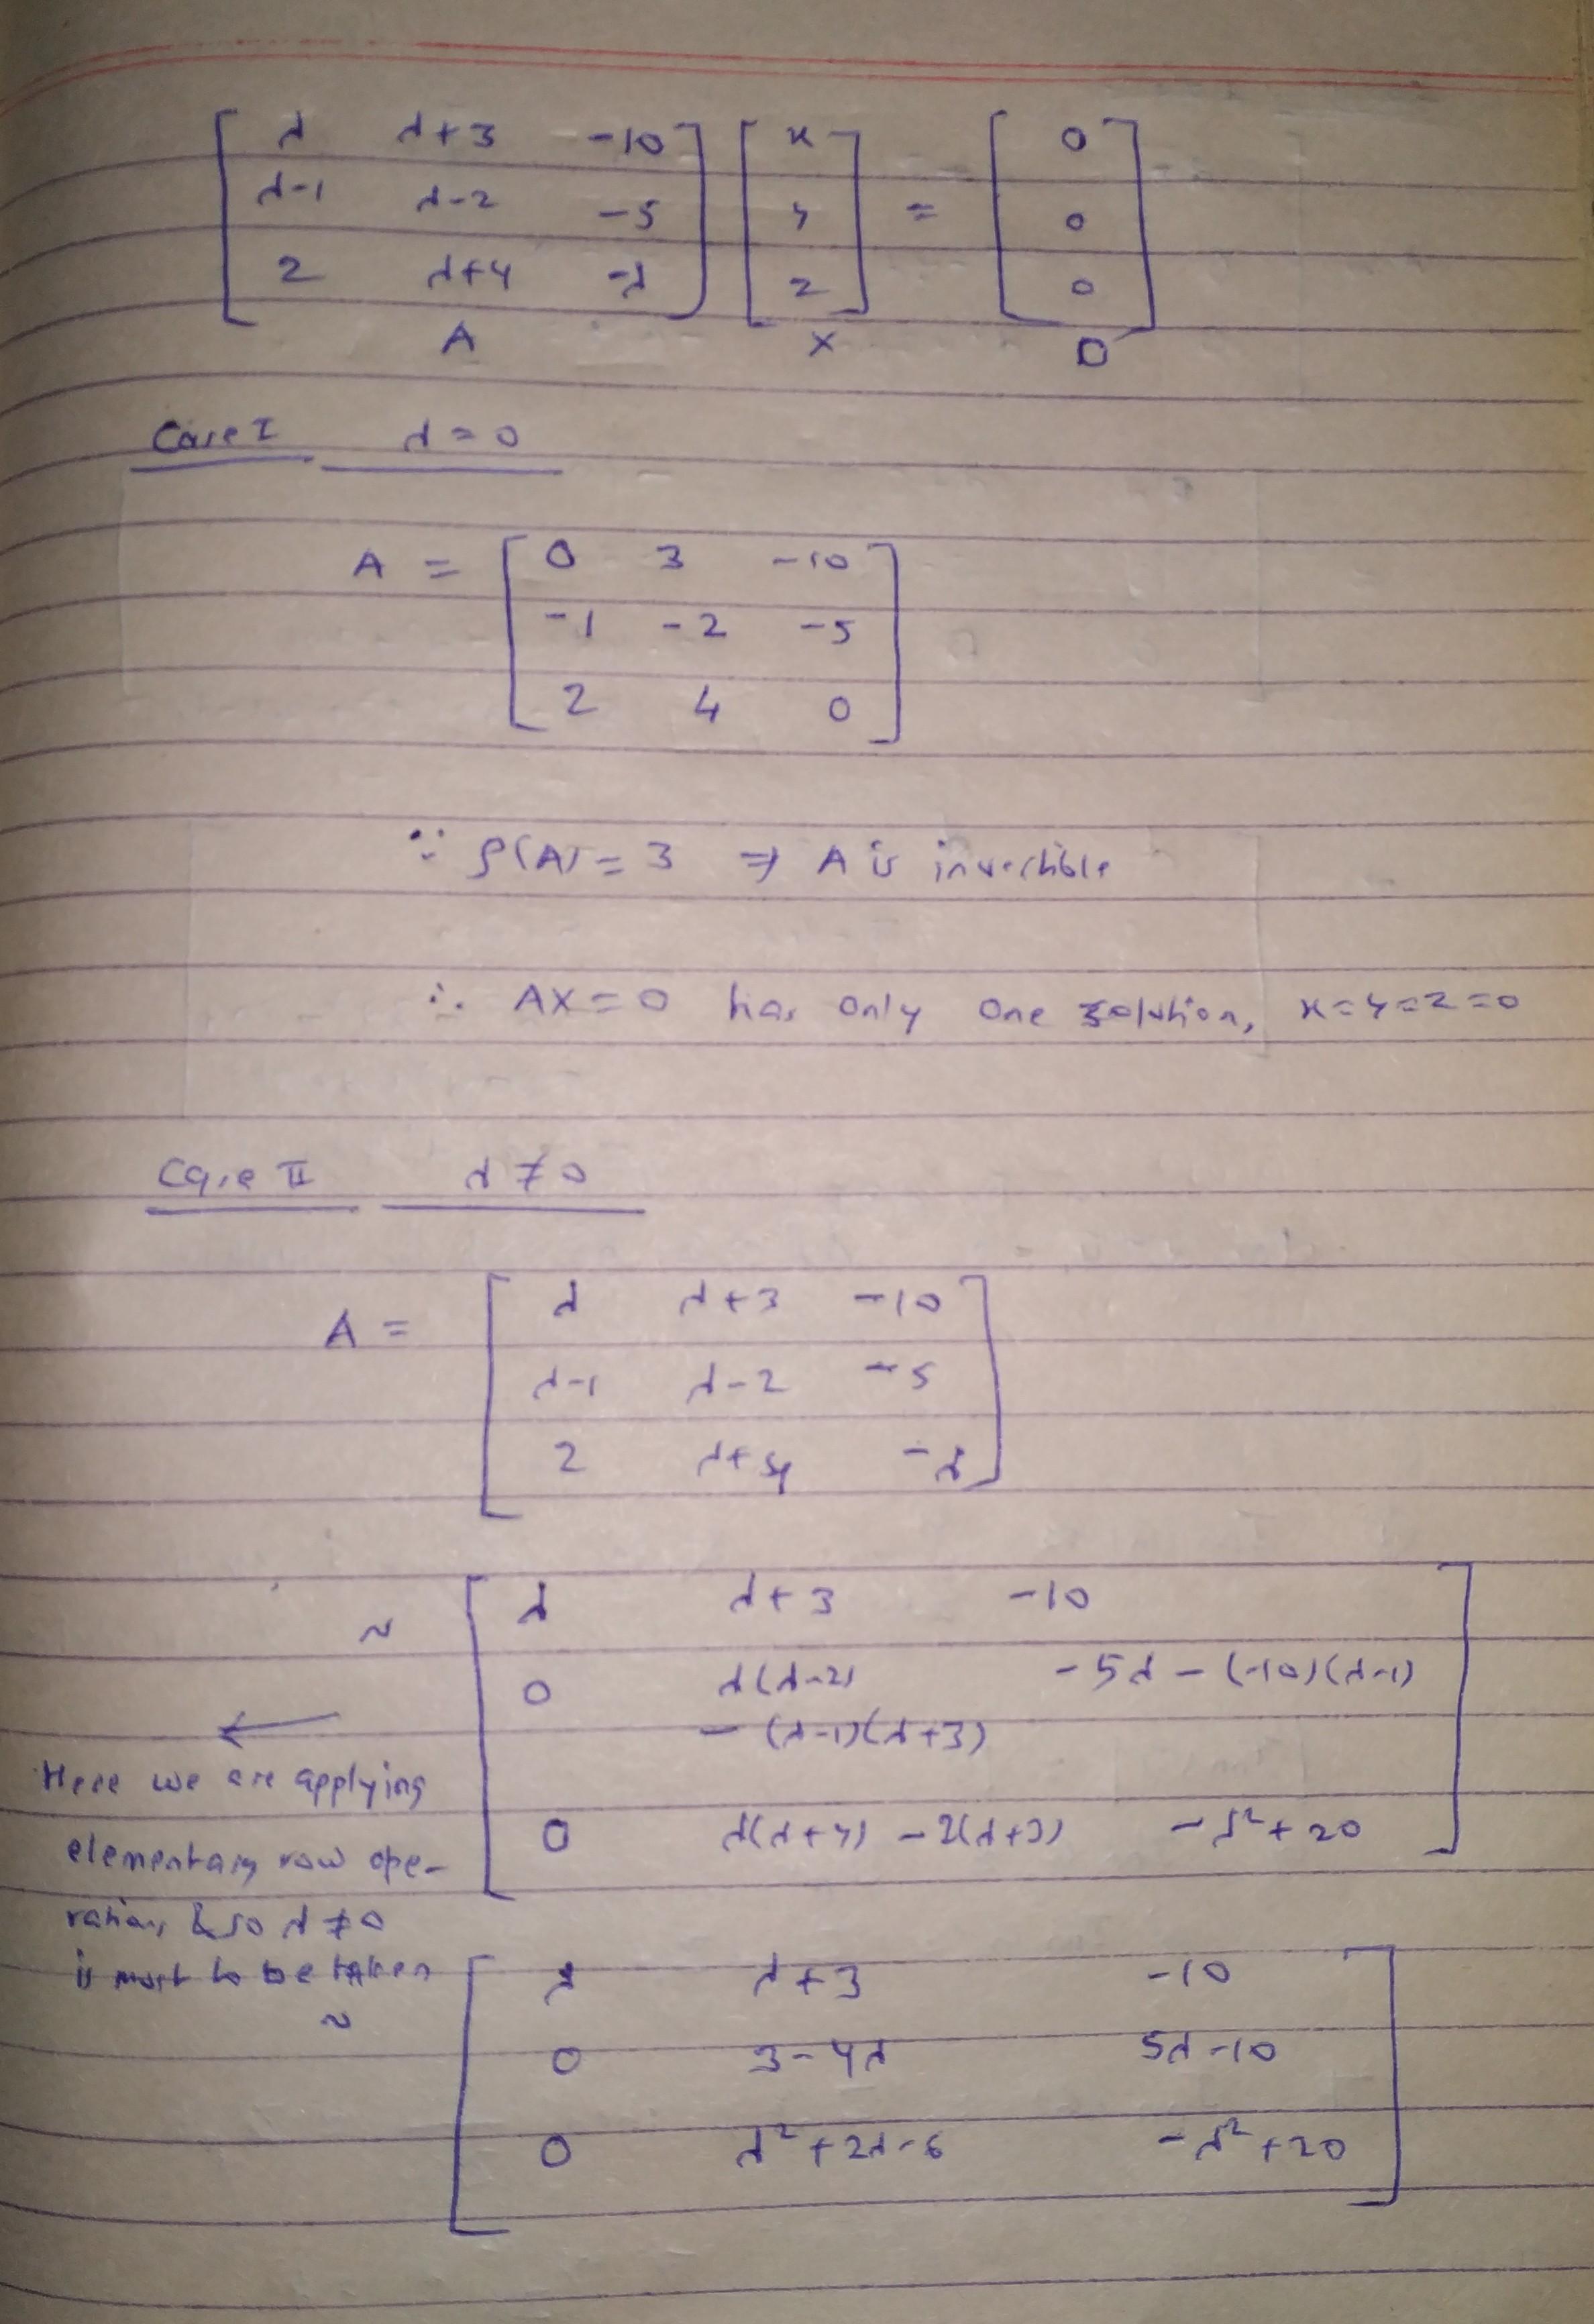 [ λ λ+3 -10 ] [ x ] = [ 0 ]
[ λ-1 λ-2 -5 ] [ y ] [ 0 ]
[ 2 λ+4 -λ ] [ z ] [ 0 ]
A X O
Case I λ=0
A = [ 0 3 -10 ]
[ -1 -2 -5 ]
[ 2 4 0 ]
∵ ρ(A) = 3 ⇒ A is invertible
∴ AX=0 has only one solution, x=y=z=0
Case II λ≠0
A = [ λ λ+3 -10 ]
[ λ-1 λ-2 -5 ]
[ 2 λ+4 -λ ]
~ [ λ λ+3 -10 ]
[ 0 λ(λ-2) - (λ-1)(λ+3) -5λ - (-10)(λ-1) ]
[ 0 λ(λ+4) - 2(λ+3) -λ²+20 ]
←
Here we are applying
elementary row ope-
rations & so λ≠0
is must to be taken
~ [ λ λ+3 -10 ]
[ 0 3-4λ 5λ-10 ]
[ 0 λ²+2λ-6 -λ²+20 ]